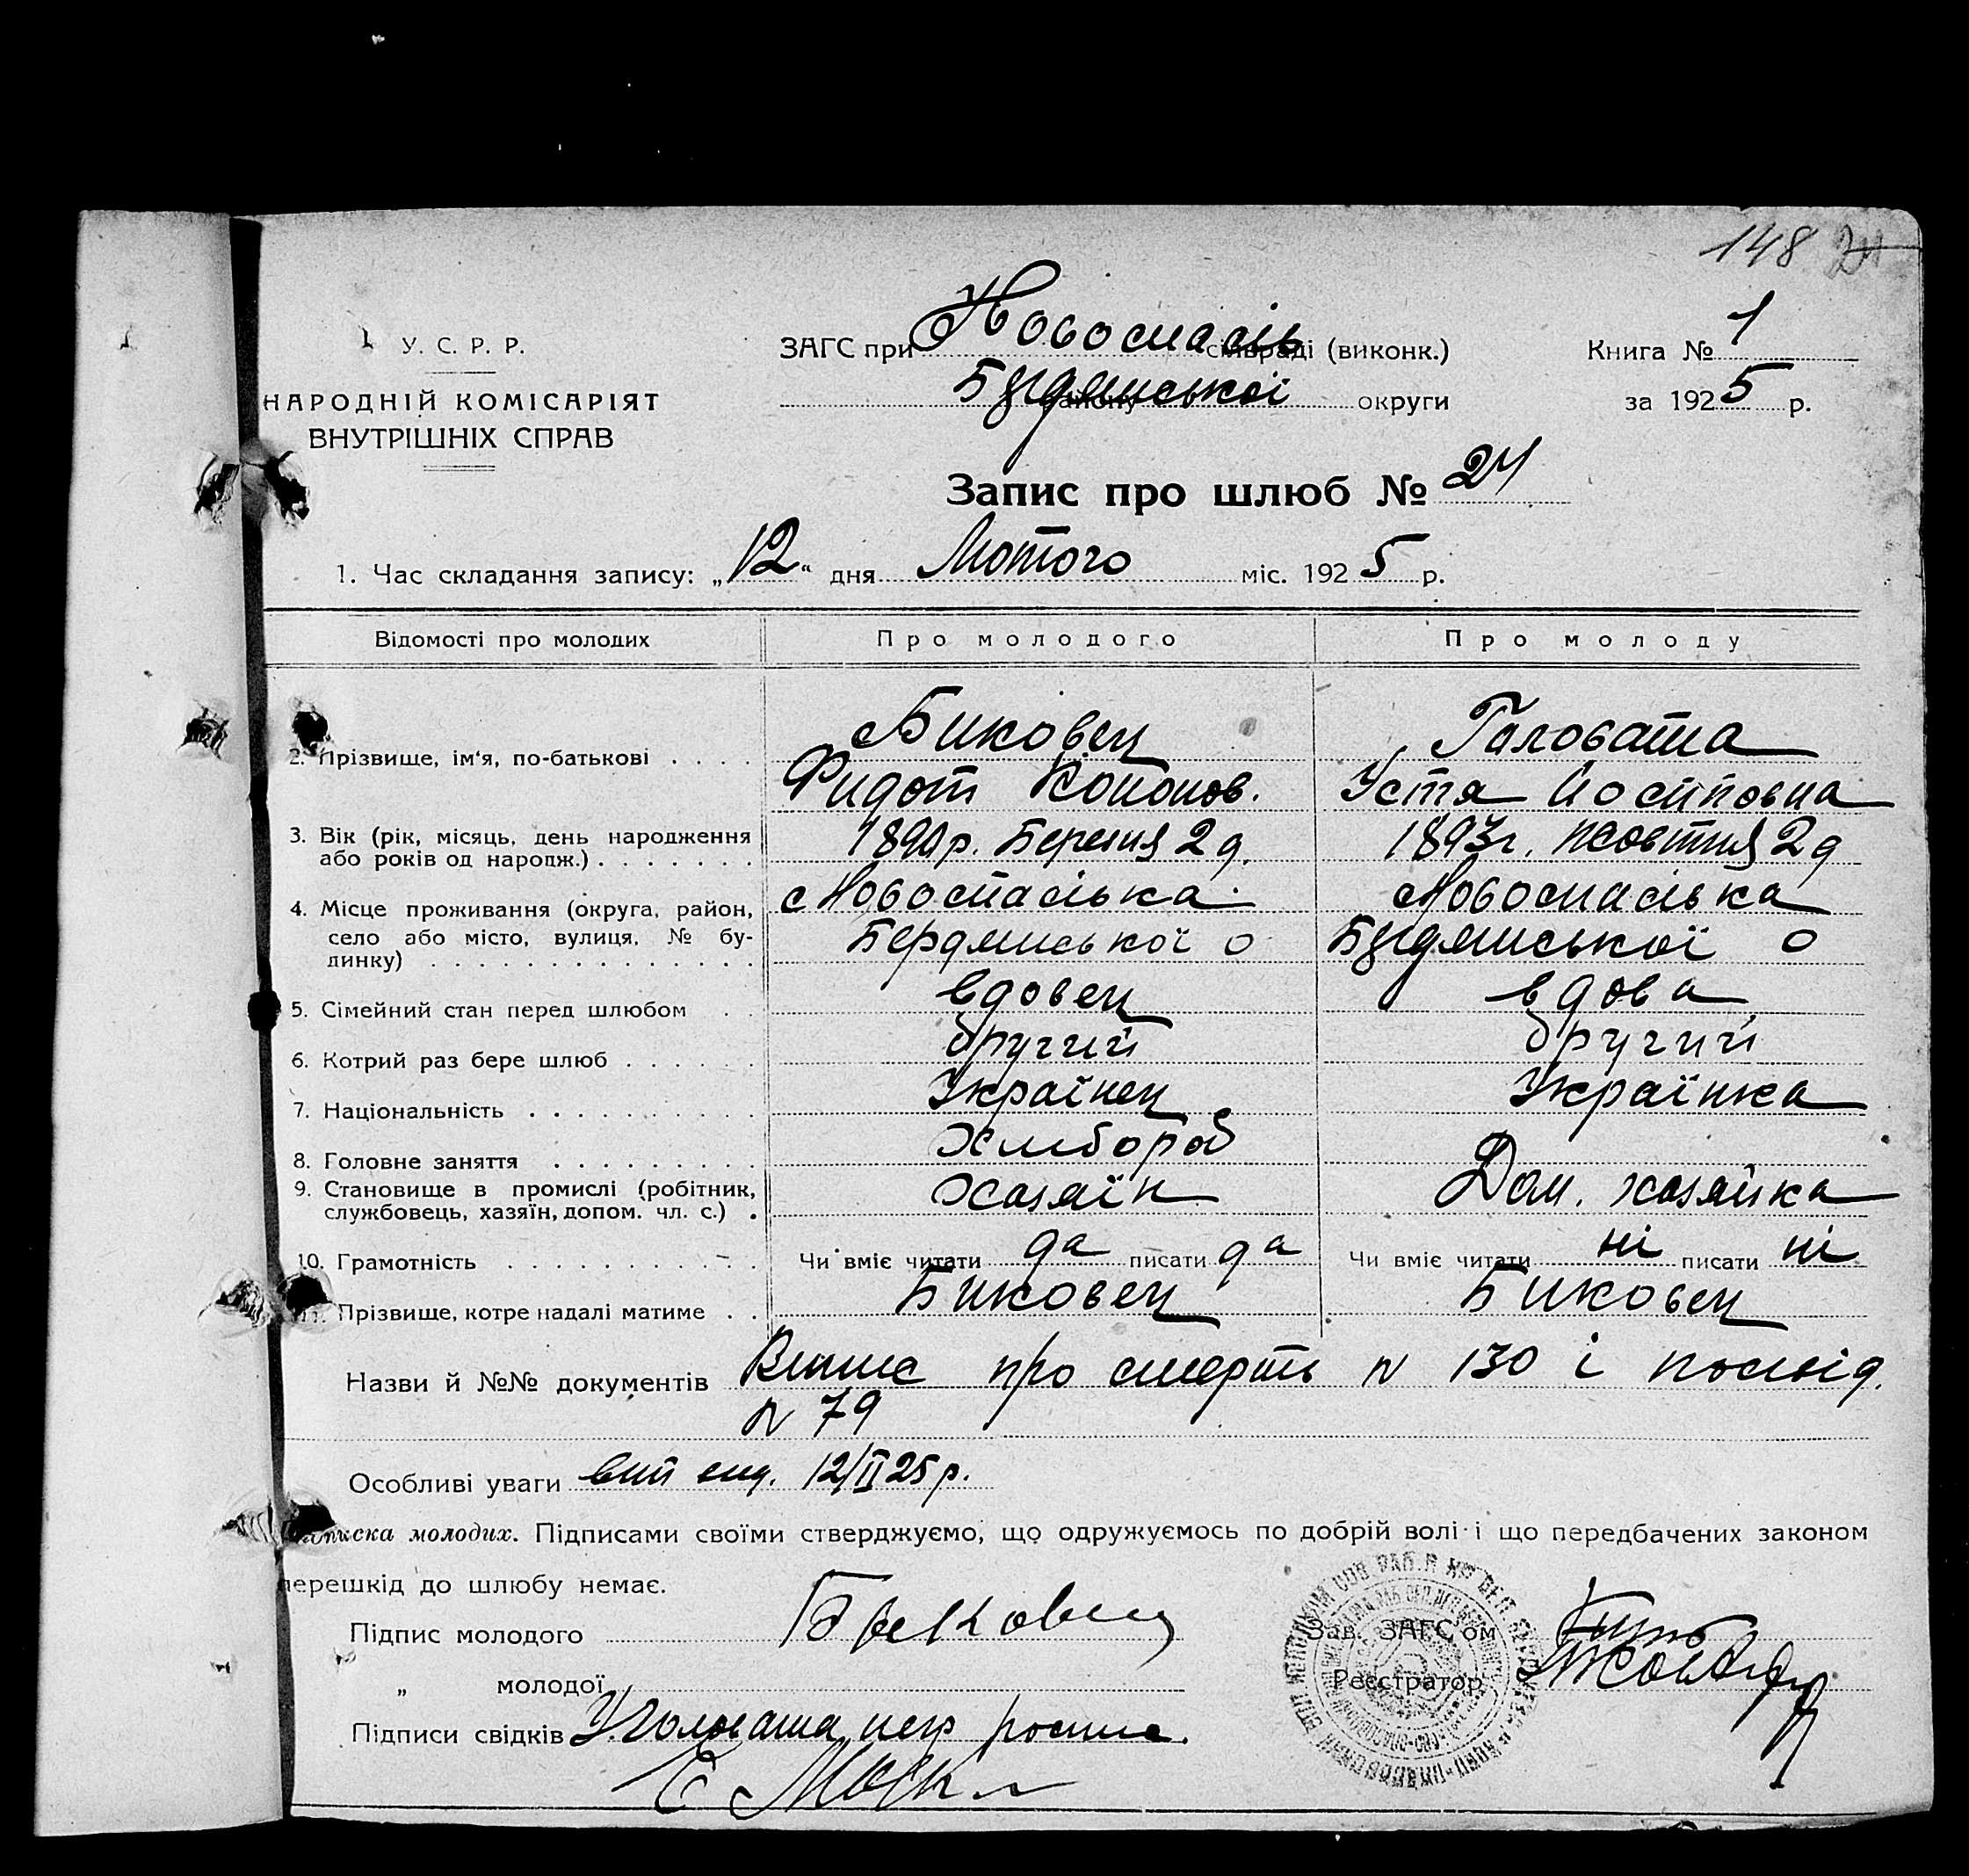 148
У. С. Р. Р.
НАРОДНІЙ КОМІСАРІЯТ
ВНУТРІШНІХ СПРАВ
ЗАГС при Новоспасів сільраді (виконк.)
Книга № 1
району округи
за 1925 р.
Запис про шлюб № 24
1. Час складання запису: „12" дня Лютого міс. 1925 р.
Відомості про молодих
Про молодого
Про молоду
2. Прізвище, ім'я, по-батькові . . . .
Биковец
Головата
Фидот Кононов.
Устя Йосиповна
3. Вік (рік, місяць, день народження
або років од народж.) . . . . . . .
р. Березня 2 д.
1893 г. жовтня 2 д
4. Місце проживання (округа, район,
село або місто, вулиця, № бу-
динку) . . . . . . . . . . . . .
с Новоспасівка
с Новоспасівка
Бердянської о
Бердянської о
5. Сімейний стан перед шлюбом . .
вдовец
вдова
6. Котрий раз бере шлюб . . . . . .
другий
другий
7. Національність . . . . . . . . . .
Українец
Українка
8. Головне заняття . . . . . . . . .
Хлибороб
9. Становище в промислі (робітник,
службовець, хазяїн, допом. чл. с.) .
Хазяїн
Дом. хазяйка
10. Грамотність . . . . . . . . . . .
Чи вміє читати да писати да
Чи вміє читати ні писати ні
11. Прізвище, котре надалі матиме . .
Биковец
Биковец
Назви й №№ документів Випис про смерть N 130 і посвід.
N 79
Особливі уваги 12/II 25 р.
Підписка молодих. Підписами своїми стверджуємо, що одружуємось по добрій волі і що передбачених законом
перешкід до шлюбу немає.
Підпис молодого Быковец
Зав. ЗАГС'ом
„ молодої
Реєстратор
Підписи свідків У. Головата